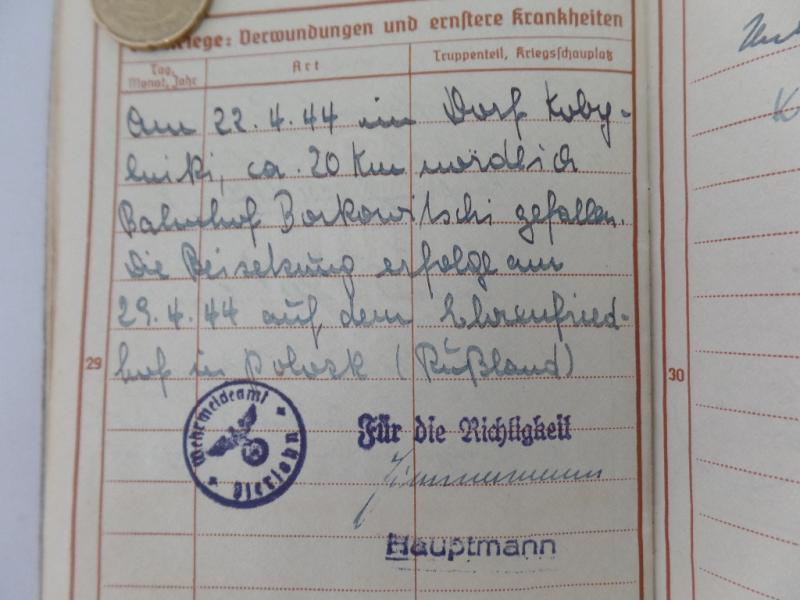 Kriege: Verwundungen und ernstere Krankheiten
Tag, Monat, Jahr
Art
Truppenteil, Kriegsschauplatz
Am 22.4.44 im Dorf Koby-
lniki, ca. 20 Km nördlich
Bahnhof Borkowitschi gefallen.
Die Beisetzung erfolge am
29.4.44 auf dem Ehrenfried-
29
hof in Polozk (Rußland)
30
Wehrmeldeamt
Für die Richtigkeit
Zimmermann
Hauptmann